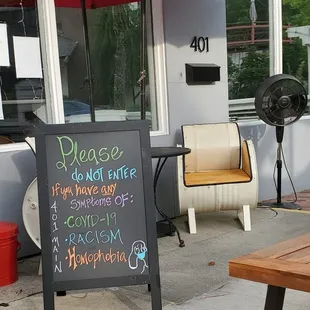 401
Please
do NOT ENTER
If you have any
Symptoms of
• COVID-19
• RACISM
• Homophobia
401 MAIN